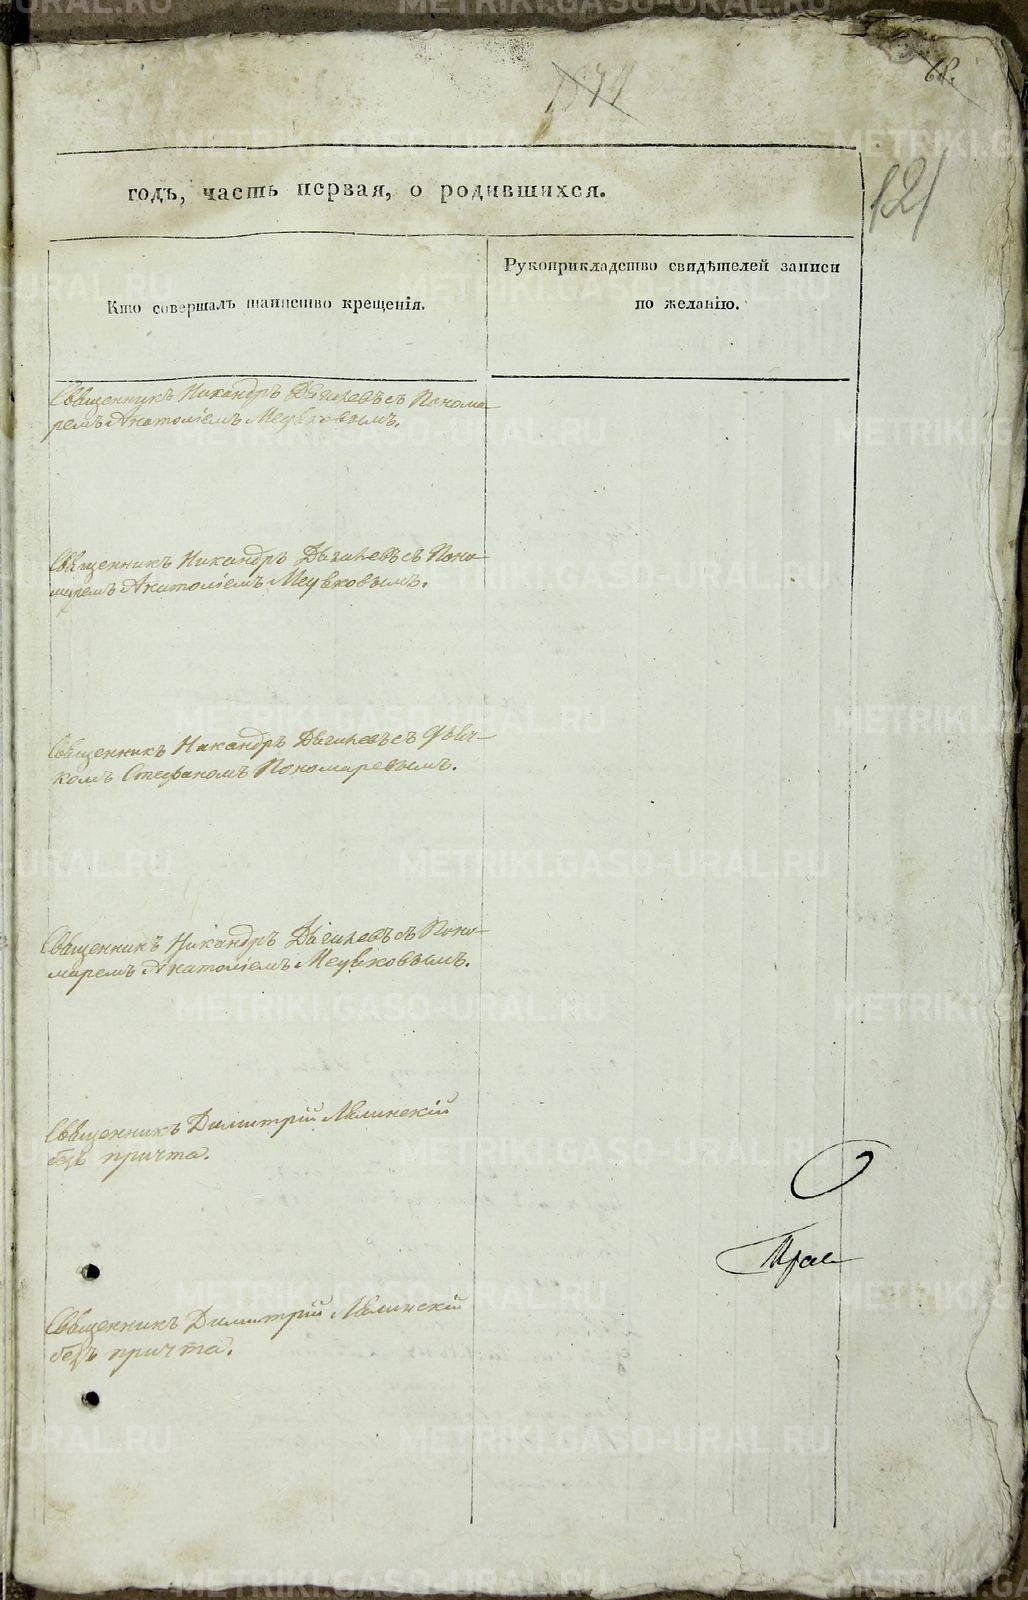 68.
1871
121
годъ, часть первая, о родившихся.
Кто совершалъ таинство крещенія.
Рукоприкладство свидѣтелей записи
по желанію.
Священникъ Никандръ Дягилевъ съ Понома-
ремъ Анатоліемъ
Священникъ Никандръ Дягилевъ съ Поно-
маремъ Анатоліемъ
Священникъ Никандръ Дягилевъ съ Дьяч-
комъ Стефаномъ Пономаревымъ.
Священникъ Никандръ Дягилевъ съ Поно-
маремъ Анатоліемъ
Священникъ Димитрій
безъ причта.
Священникъ Димитрій
безъ причта.
METRIKI.GASO-URAL.RU